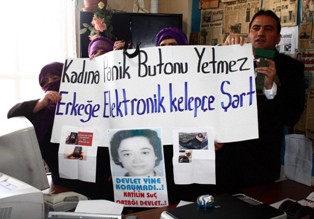 Kadına Panik Butonu Yetmez
Erkeğe Elektronik kelepçe Şart
DEVLET YİNE
KORUMADI..!
KATİLİN SUÇ
ORTAĞI DEVLET..!